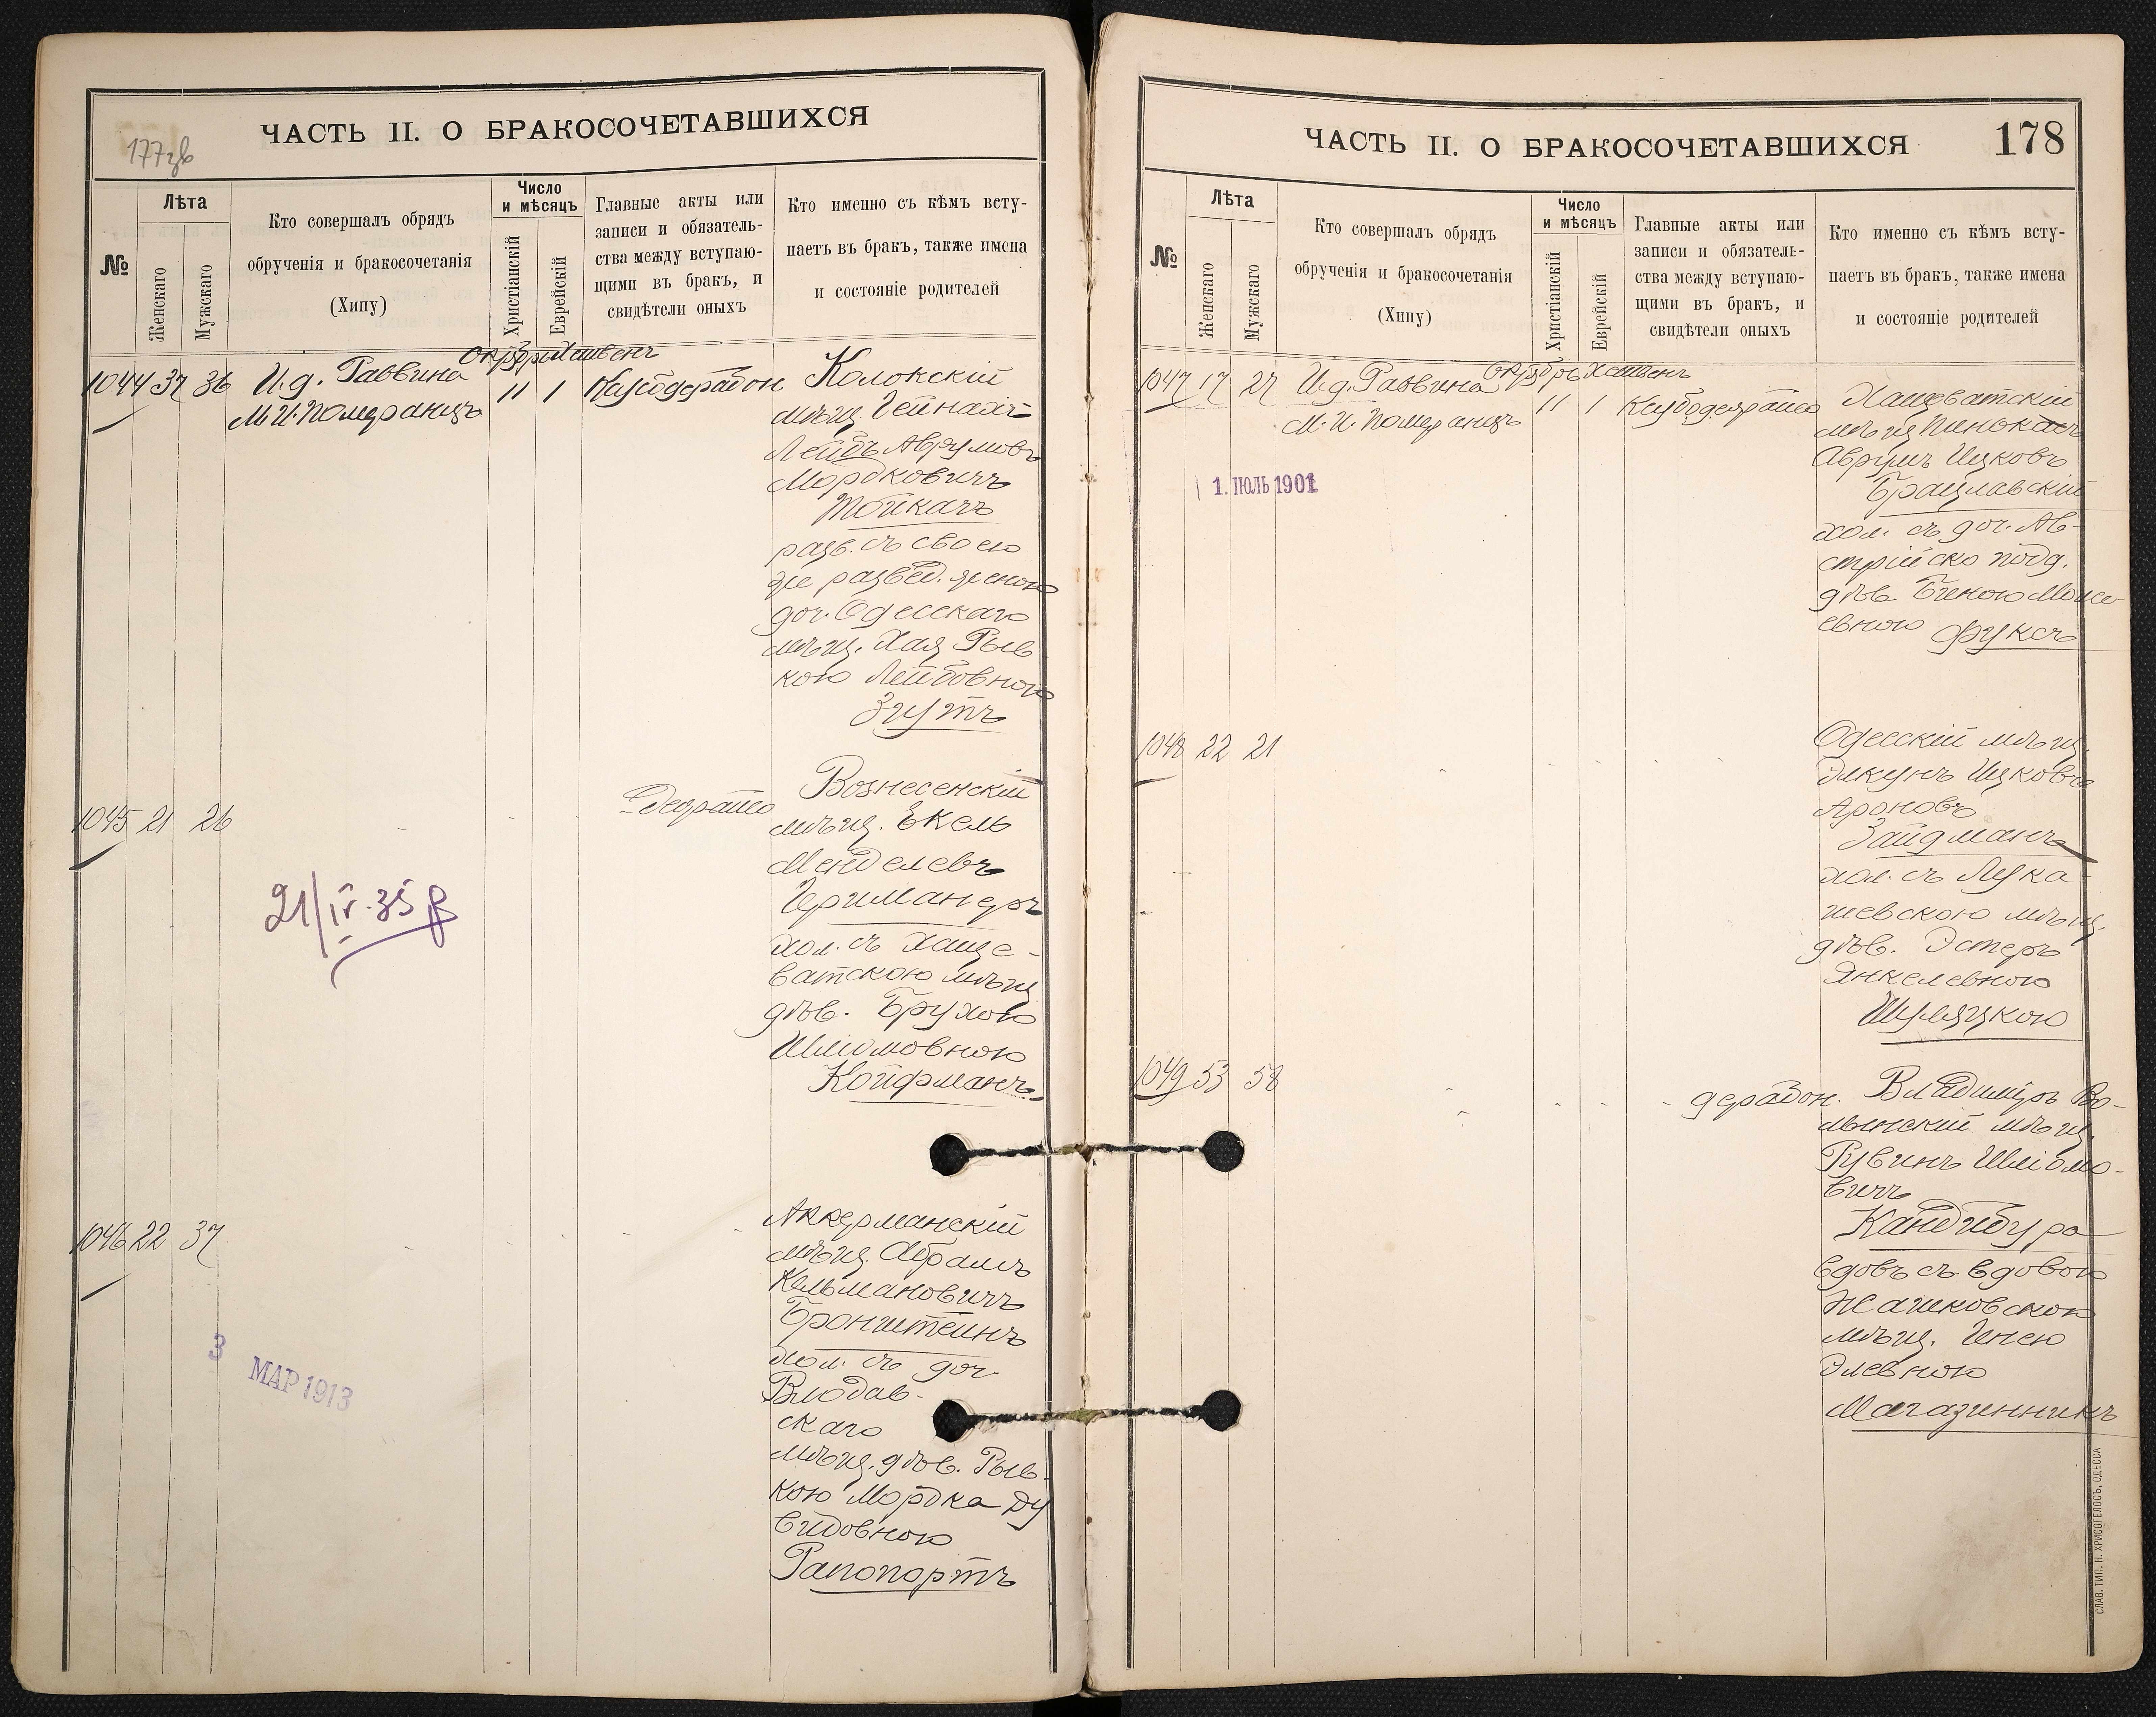 ЧАСТЬ II. О БРАКОСОЧЕТАВШИХСЯ
177зв
№
Лѣта
Женскаго
Мужскаго
Кто совершалъ обрядъ
обрученія и бракосочетанія
(Хипу)
Число
и мѣсяцъ
Христіанскій
Еврейскій
Главные акты или
записи и обязатель-
ства между вступаю-
щими въ бракъ, и
свидѣтели оныхъ
Кто именно съ кѣмъ всту-
паетъ въ бракъ, также имена
и состояніе родителей
1044 37 36 И.д. Раввина
М.И. Померанцъ
Октябрь Хешвенъ
11 1
Колокскій
мѣщ. Гейнахъ
Лейбъ Аврумовъ
Мордковичъ
Тойкачъ
разв. съ своею
же развед. женою
доч. Одесскаго
мѣщ. Хая Рыв
кою Лейбовною
Згутъ
1045 21 26
Вознесенскій
мѣщ. Екель
Менделевъ
Геримансръ
хол. съ Хаще-
ватскою мѣщ
дѣв. Брухою
Шлиомовною
Койфманъ
21/IV-35
1046 22 37
Аккерманскій
мѣщ. Абрамъ
Кельмановичъ
Бронштейнъ
хол. съ доч
Влодав-
скаго
мѣщ. дѣв. Рыв-
кою Мордка Ду
видовною
Рапопортъ
3 МАР 1913
ЧАСТЬ II. О БРАКОСОЧЕТАВШИХСЯ
178
№
Лѣта
Женскаго
Мужскаго
Кто совершалъ обрядъ
обрученія и бракосочетанія
(Хипу)
Число
и мѣсяцъ
Христіанскій
Еврейскій
Главные акты или
записи и обязатель-
ства между вступаю-
щими въ бракъ, и
свидѣтели оныхъ
Кто именно съ кѣмъ всту-
паетъ въ бракъ, также имена
и состояніе родителей
1047 17 27 И.д. Раввина
М.И. Померанцъ
Октябрь Хешвенъ
11 1
1. ІЮЛЬ 1901
Хащеватскій
мѣщ Пинокасъ
Аврумъ Ицковъ
Брацлавскій
хол. съ доч. Ав-
стрійско подд.
дѣв. Бееною Моисе
евною Фуксъ
1048 22 21
Одесскій мѣщ.
Элкунъ Ицковъ
Ароновъ
Зайдманъ
хол. съ Лука
шевскою мѣщ.
дѣв. Эстеръ
Янкелевною
Шуляцкою
1049 53 58
Владиміръ Во-
лынскій мѣщ.
Рувинъ Шліомо-
вичъ
Кандибура
вдовъ съ вдовою
Жашковскою
мѣщ. Генею
Элевною
Магазинникъ
СЛАВ. ТИП. Н. ХРИСОГЕЛОСЪ, ОДЕССА